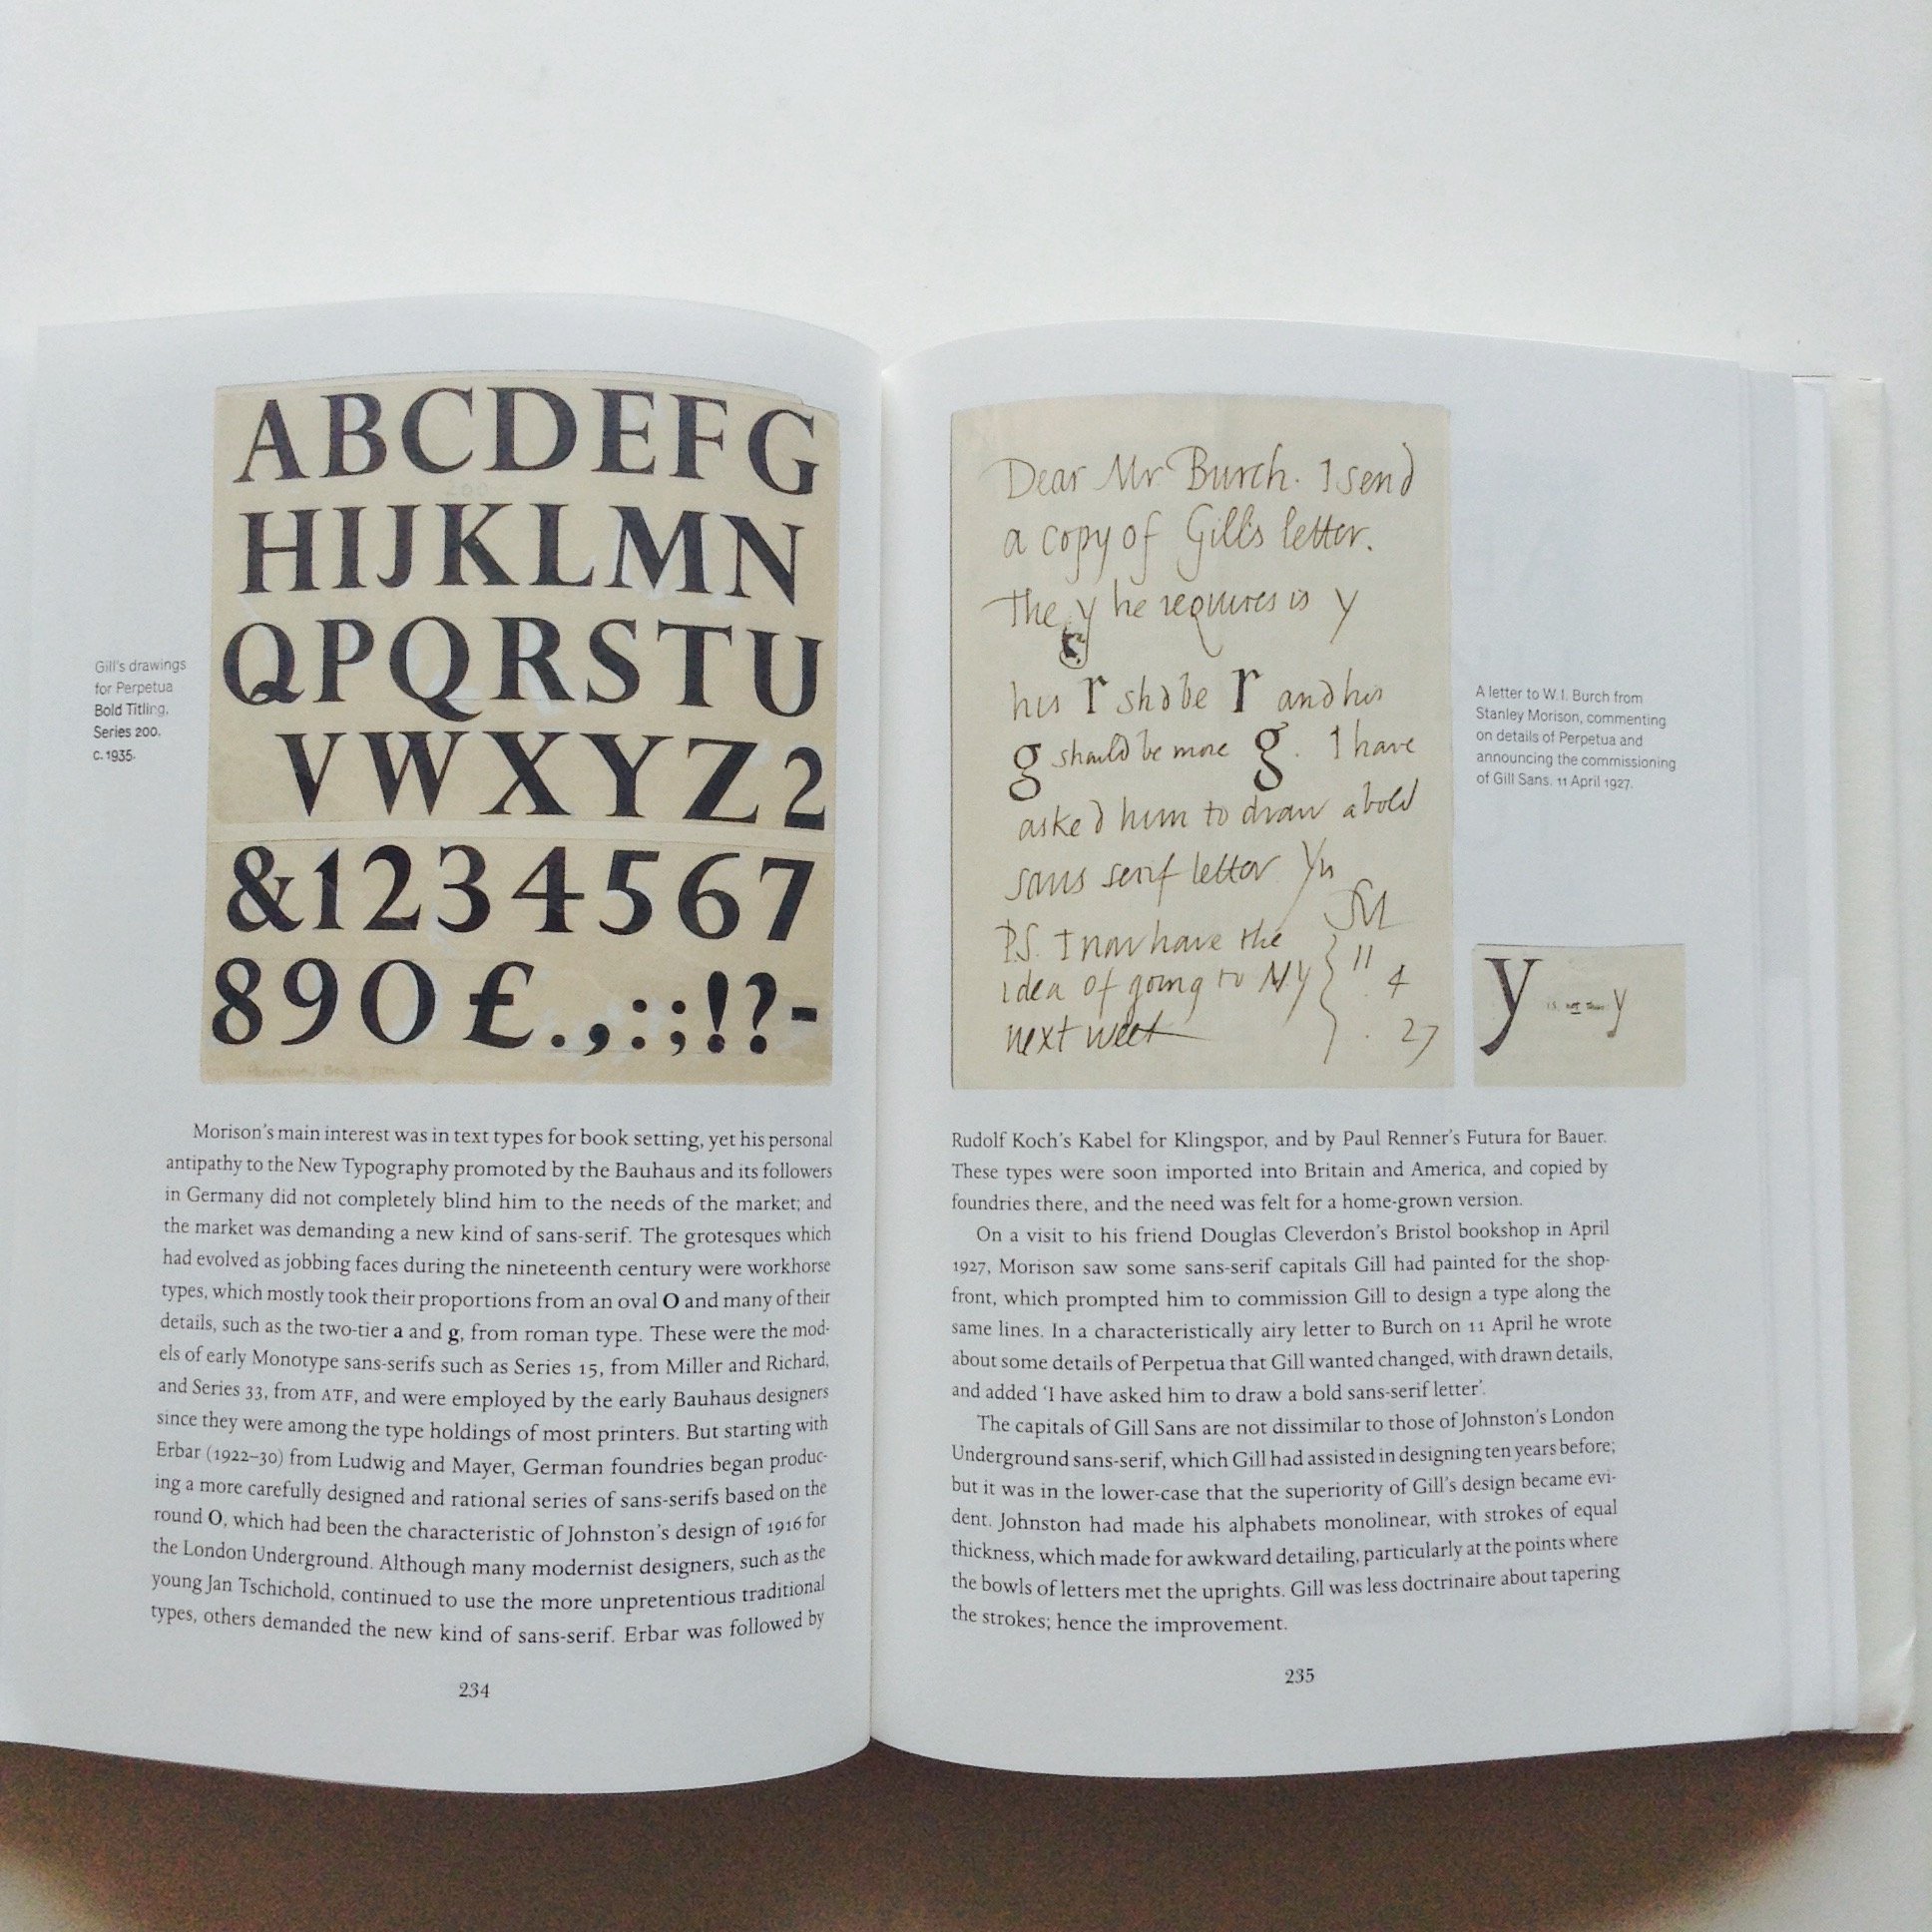 ABCDEFG
HIJKLMN
QPQRSTU
VWXYZ2
&1234567
890£.,:;!?-
Gill's drawings
for Perpetua
Bold Titling,
Series 200,
c. 1935.
Morison's main interest was in text types for book setting, yet his personal
antipathy to the New Typography promoted by the Bauhaus and its followers
in Germany did not completely blind him to the needs of the market; and
the market was demanding a new kind of sans-serif. The grotesques which
had evolved as jobbing faces during the nineteenth century were workhorse
types, which mostly took their proportions from an oval O and many of their
details, such as the two-tier a and g, from roman type. These were the mod-
els of early Monotype sans-serifs such as Series 15, from Miller and Richard,
and Series 33, from ATF, and were employed by the early Bauhaus designers
since they were among the type holdings of most printers. But starting with
Erbar (1922–30) from Ludwig and Mayer, German foundries began produc-
ing a more carefully designed and rational series of sans-serifs based on the
round O, which had been the characteristic of Johnston's design of 1916 for
the London Underground. Although many modernist designers, such as the
young Jan Tschichold, continued to use the more unpretentious traditional
types, others demanded the new kind of sans-serif. Erbar was followed by
234
Dear Mr Burch. I send
a copy of Gill's letter.
The y he requires is y
his r shd be r and his
g should be more g. I have
asked him to draw a bold
sans serif letter Yrs
SM
P.S. I now have the
idea of going to NY
next week
11
4
27
A letter to W. I. Burch from
Stanley Morison, commenting
on details of Perpetua and
announcing the commissioning
of Gill Sans. 11 April 1927.
y is not this y
Rudolf Koch's Kabel for Klingspor, and by Paul Renner's Futura for Bauer.
These types were soon imported into Britain and America, and copied by
foundries there, and the need was felt for a home-grown version.
On a visit to his friend Douglas Cleverdon's Bristol bookshop in April
1927, Morison saw some sans-serif capitals Gill had painted for the shop-
front, which prompted him to commission Gill to design a type along the
same lines. In a characteristically airy letter to Burch on 11 April he wrote
about some details of Perpetua that Gill wanted changed, with drawn details,
and added 'I have asked him to draw a bold sans-serif letter'.
The capitals of Gill Sans are not dissimilar to those of Johnston's London
Underground sans-serif, which Gill had assisted in designing ten years before;
but it was in the lower-case that the superiority of Gill's design became evi-
dent. Johnston had made his alphabets monolinear, with strokes of equal
thickness, which made for awkward detailing, particularly at the points where
the bowls of letters met the uprights. Gill was less doctrinaire about tapering
the strokes; hence the improvement.
235